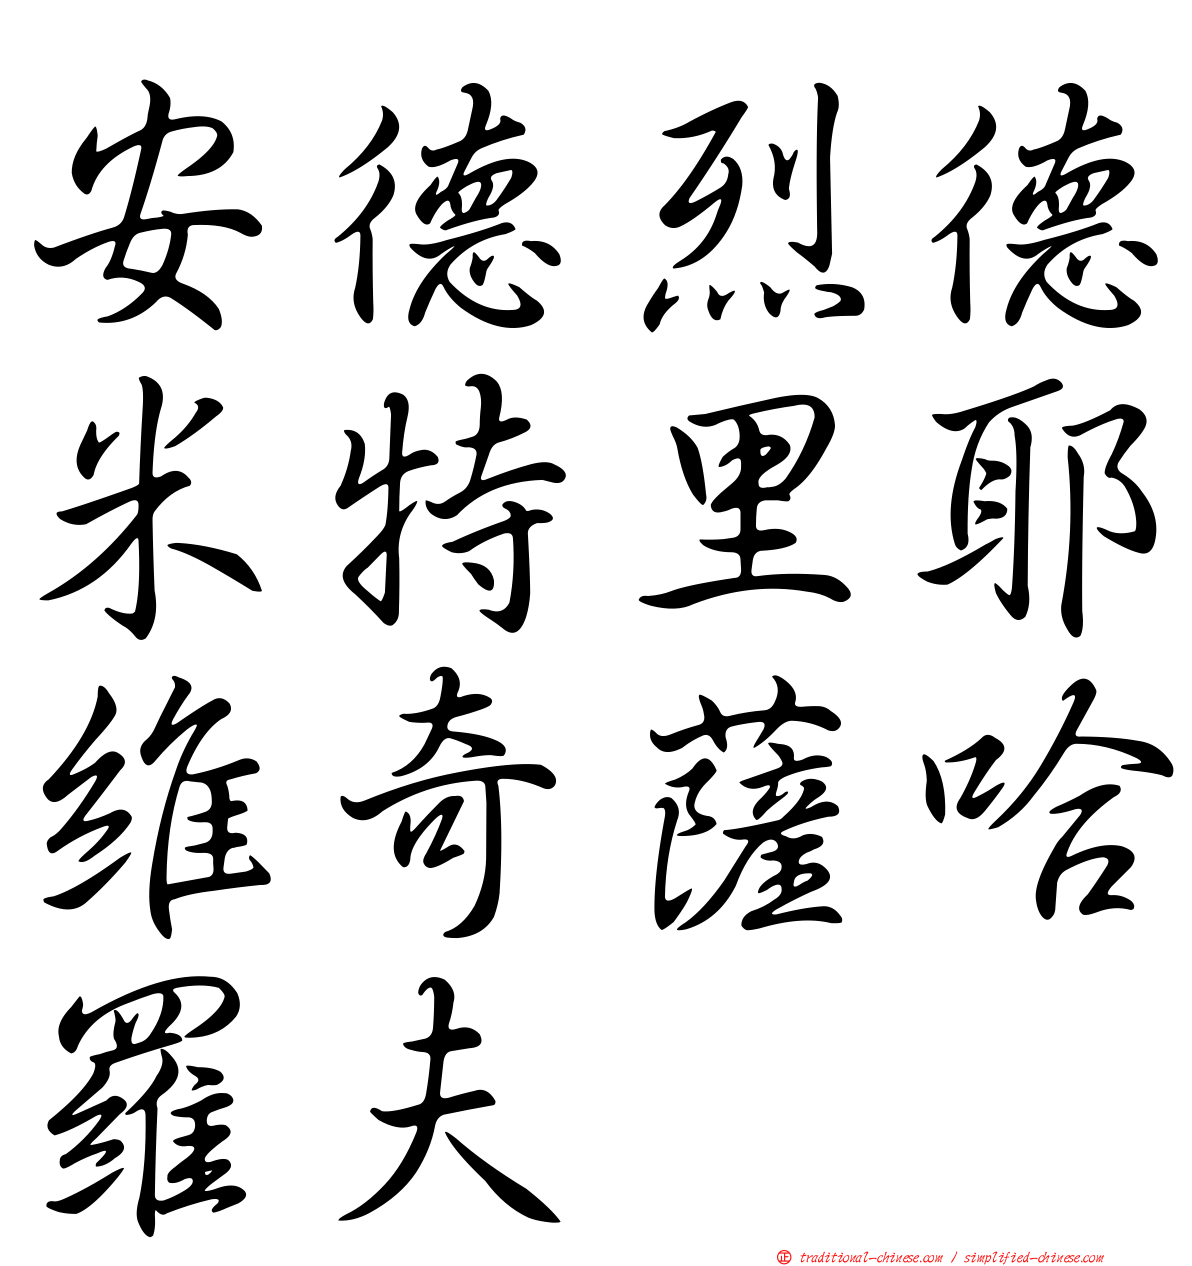 安德烈德
米特里耶
维奇薩哈
羅夫
㊣ traditional-chinese.com / simplified-chinese.com